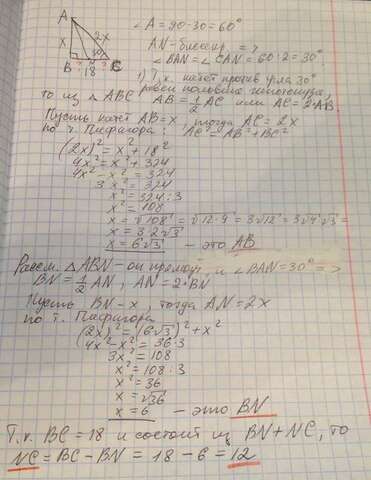 A
x
2x
30
B
N
C
18
∠A = 90-30=60°
AN-биссектр. =>
∠BAN=∠CAN=60:2=30°
1) Т.к. катет против угла 30°
равен половине гипотенузы,
то из △ABC AB=½AC или AC=2·AB.
Пусть катет AB=x, тогда AC=2x
по т. Пифагора: AC²=AB²+BC²
(2x)²=x²+18²
4x²=x²+324
4x²-x²=324
3x²=324
x²=324:3
x²=108
x=√108=√12·9=3√12=3√4√3=
x=3·2√3
x=6√3 - это AB
Рассм. △ABN-он прямоуг. и ∠BAN=30° =>
BN=½AN, AN=2·BN
Пусть BN-x, тогда AN=2x
по т. Пифагора
(2x)²=(6√3)²+x²
4x²-x²=36·3
3x²=108
x²=108:3
x²=36
x=√36
x=6 - это BN
Т.к. BC=18 и состоит из BN+NC, то
NC=BC-BN=18-6=12